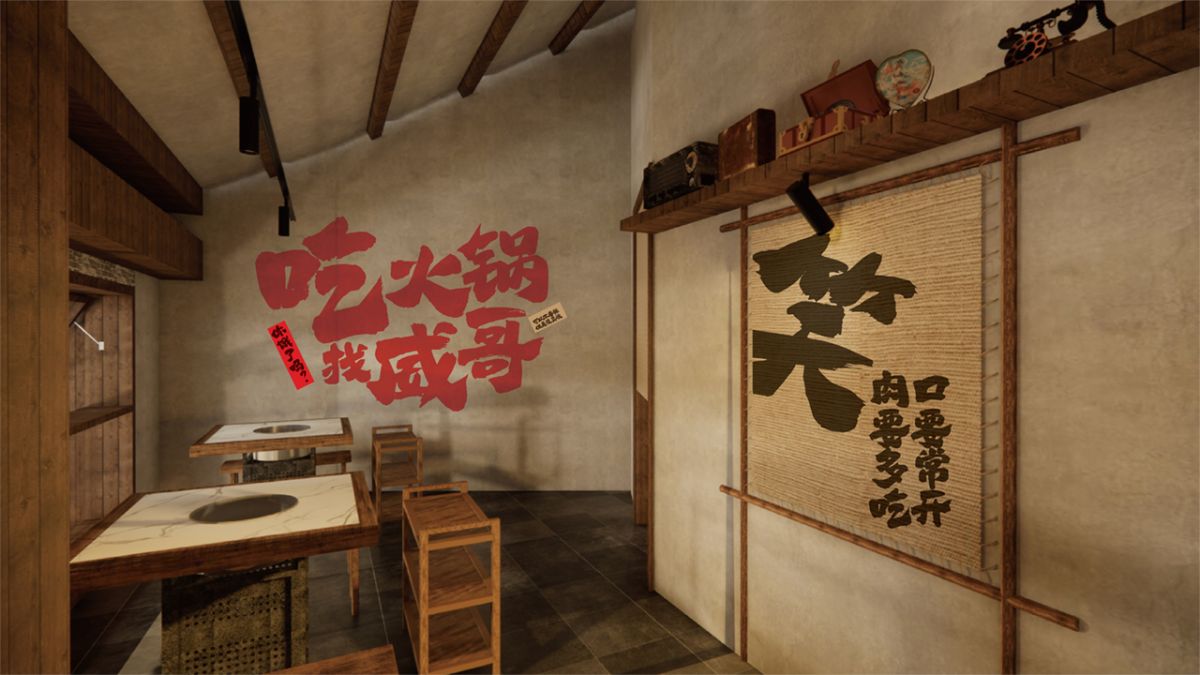 吃火锅
找威哥
你饿了吗？
笑
口要常开
肉要多吃